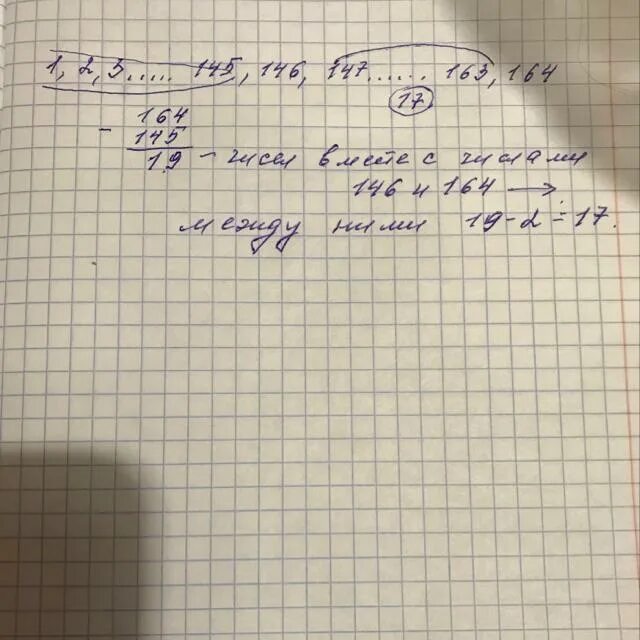 1, 2, 3..... 145, 146, 147...... 163, 164
17
164
- 145
19 - чисел вместе с числами
146 и 164 →
между ними 19-2=17.